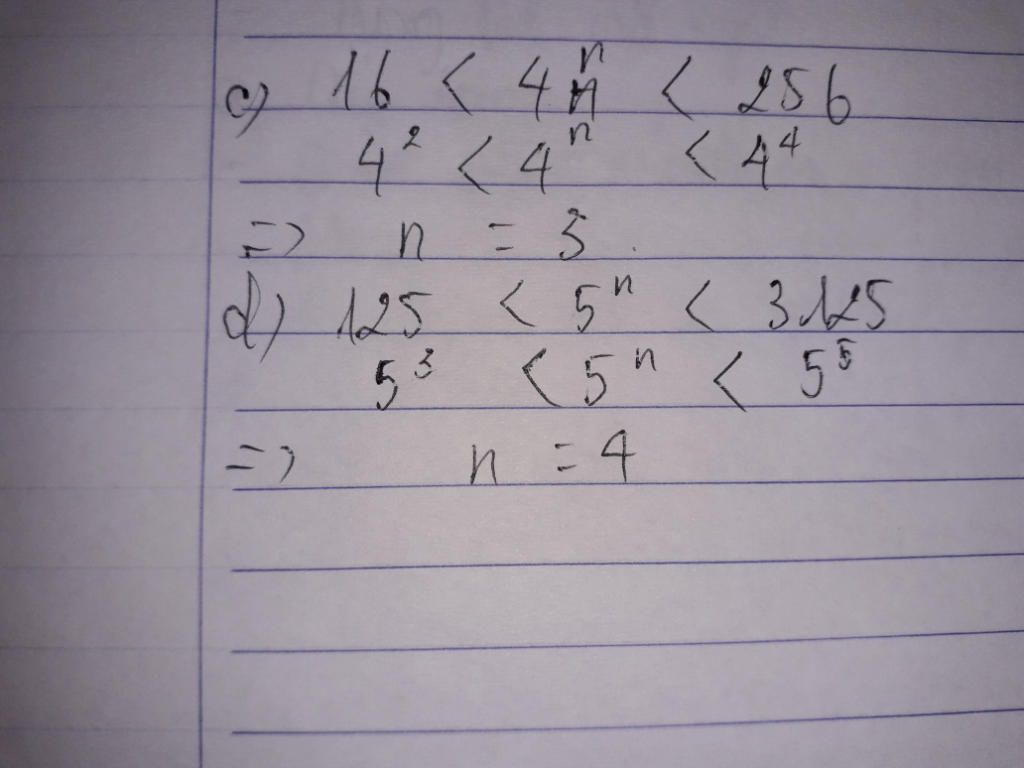 c) 16 < 4ⁿ < 256
4² < 4ⁿ < 4⁴
=> n = 3.
d) 125 < 5ⁿ < 3125
5³ < 5ⁿ < 5⁵
=> n = 4